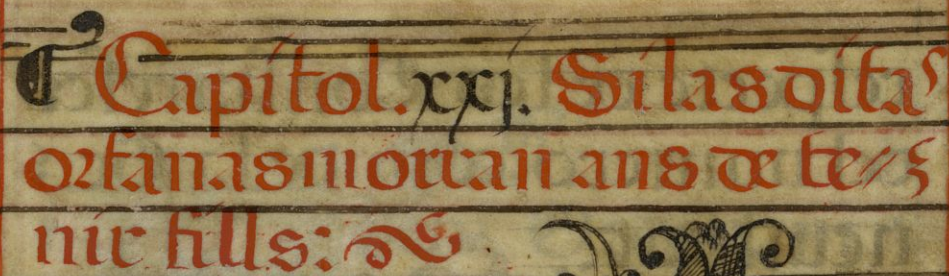 ¶ Capitol. xxj. Si las ditas
orfanas morran ans de te//
nir fills: